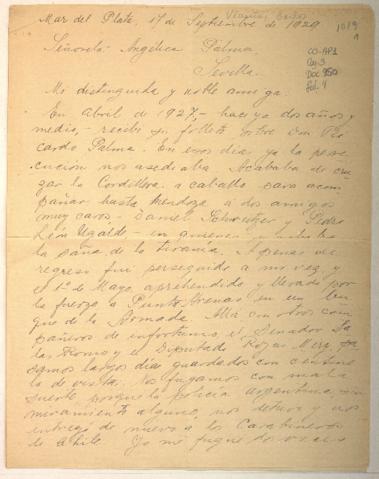 Mar del Plata, 17 de Septiembre de 1929
Señorita: Angélica Palma
Sevilla.
Mi distinguida y noble amiga:
En Abril de 1927, - hace ya dos años y
medio, - recibí su folleto sobre Don Ri-
cardo Palma. En esos días ya la perse-
cución nos asediaba. Acababa de cru-
zar la Cordillera a caballo para acom-
pañar hasta Mendoza a dos amigos
muy caros - Daniel Schweitzer y Pedro
León Ugalde - en quienes
la saña de la tiranía. Apenas de
regreso fuí perseguido a mi vez, y
el 1º de Mayo aprehendido y llevado por
la fuerza a Punta Arenas en un bu-
que de la Armada. Allí con otros com-
pañeros de infortunio, el Senador Sa-
las Romo y el Diputado Rojas Mery, pa-
samos largos días guardados con centine-
la de vista. Nos fugamos con mala
suerte, porque la policía argentina, sin
miramiento alguno, nos detuvo y nos
entregó de nuevo a los Carabineros
de Chile. Yo me fugué dos veces
1019
CO-AP1
Cj-3
Doc 950
fol. 1